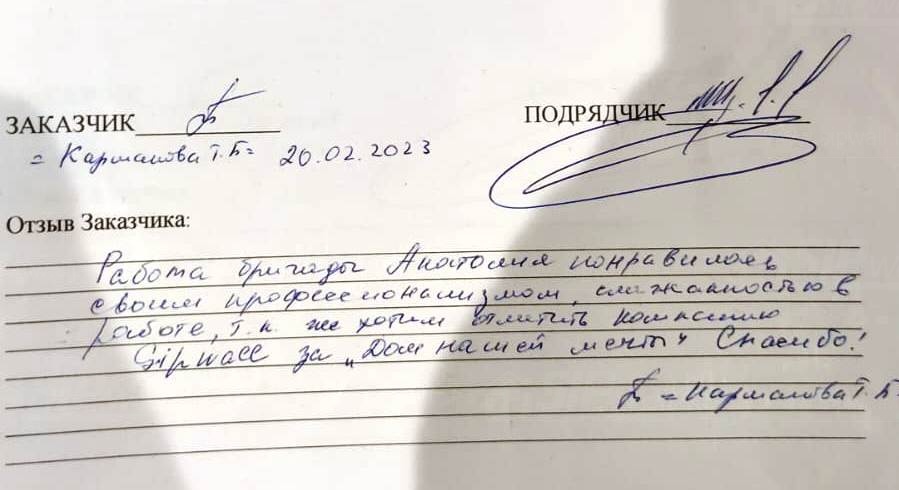 ЗАКАЗЧИК ПОДРЯДЧИК
= Карманова Т.Б= 20.02.2023
Отзыв Заказчика:
Работа бригады Анатолия понравилась
своим профессионализмом, слажанностью в
работе, т.к. же хотим отметить компанию
Sipwall за „Дом нашей мечты" Спасибо!
= Карманова Т.Б.